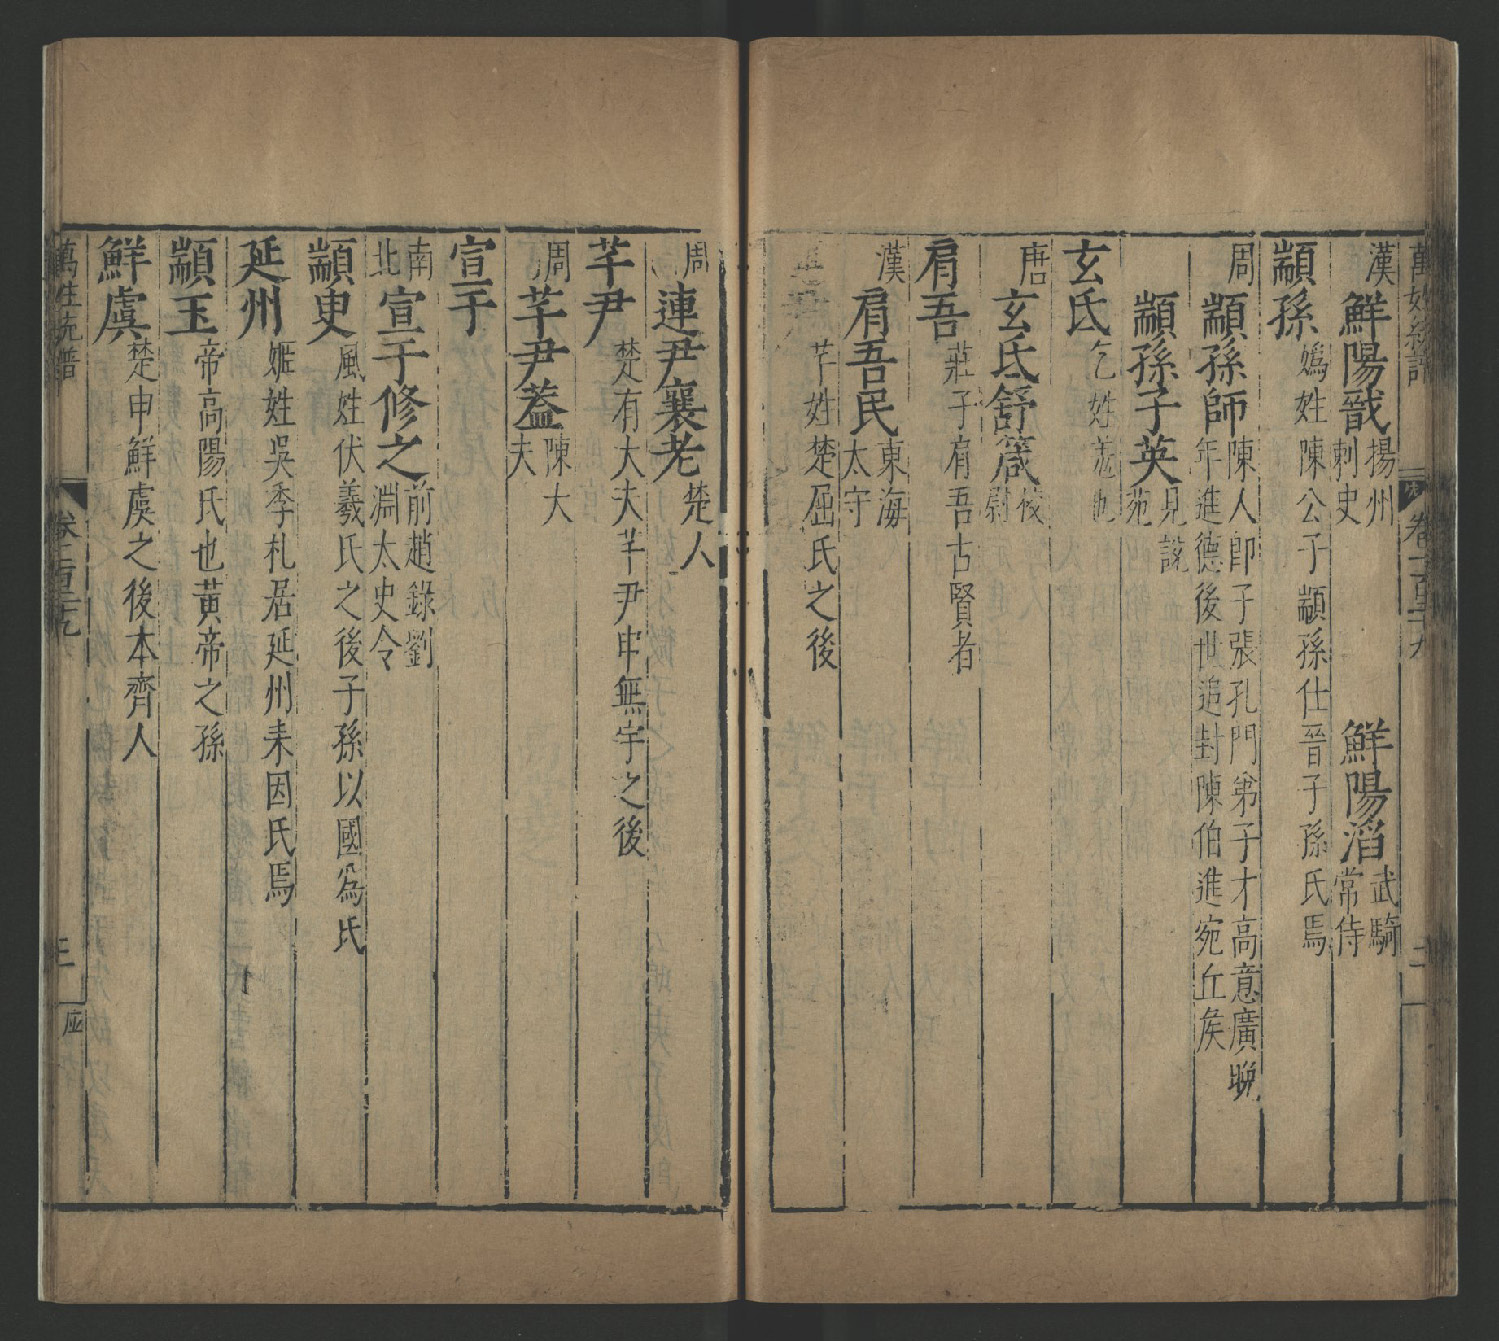 漢 鮮陽戩 揚州刺史 鮮陽滔 武騎常侍
顓孫 媯姓陳公子顓孫仕晉子孫氏焉
周 顓孫師 陳人卽子張孔門弟子才高意廣晚年進德後世追封陳伯進宛丘矦
顓孫子英 見說苑
玄氏 乞姓羌也
唐 玄氏舒箴 校尉
肩吾 莊子有肩吾古賢者
漢 肩吾民 東海太守
芉姓楚屈氏之後
周 連尹襄老 楚人
芊尹 楚有大夫芊尹申無宇之後
周 芊尹蓋 陳大夫
宣于
南北 宣于修之 前趙錄劉淵太史令
顓叟 風姓伏羲氏之後子孫以國爲氏
延州 姬姓吳季札居延州來因氏焉
顓玉 帝高陽氏也黃帝之孫
鮮虞 楚申鮮虞之後本齊人
萬姓統譜 卷一百三十九 三